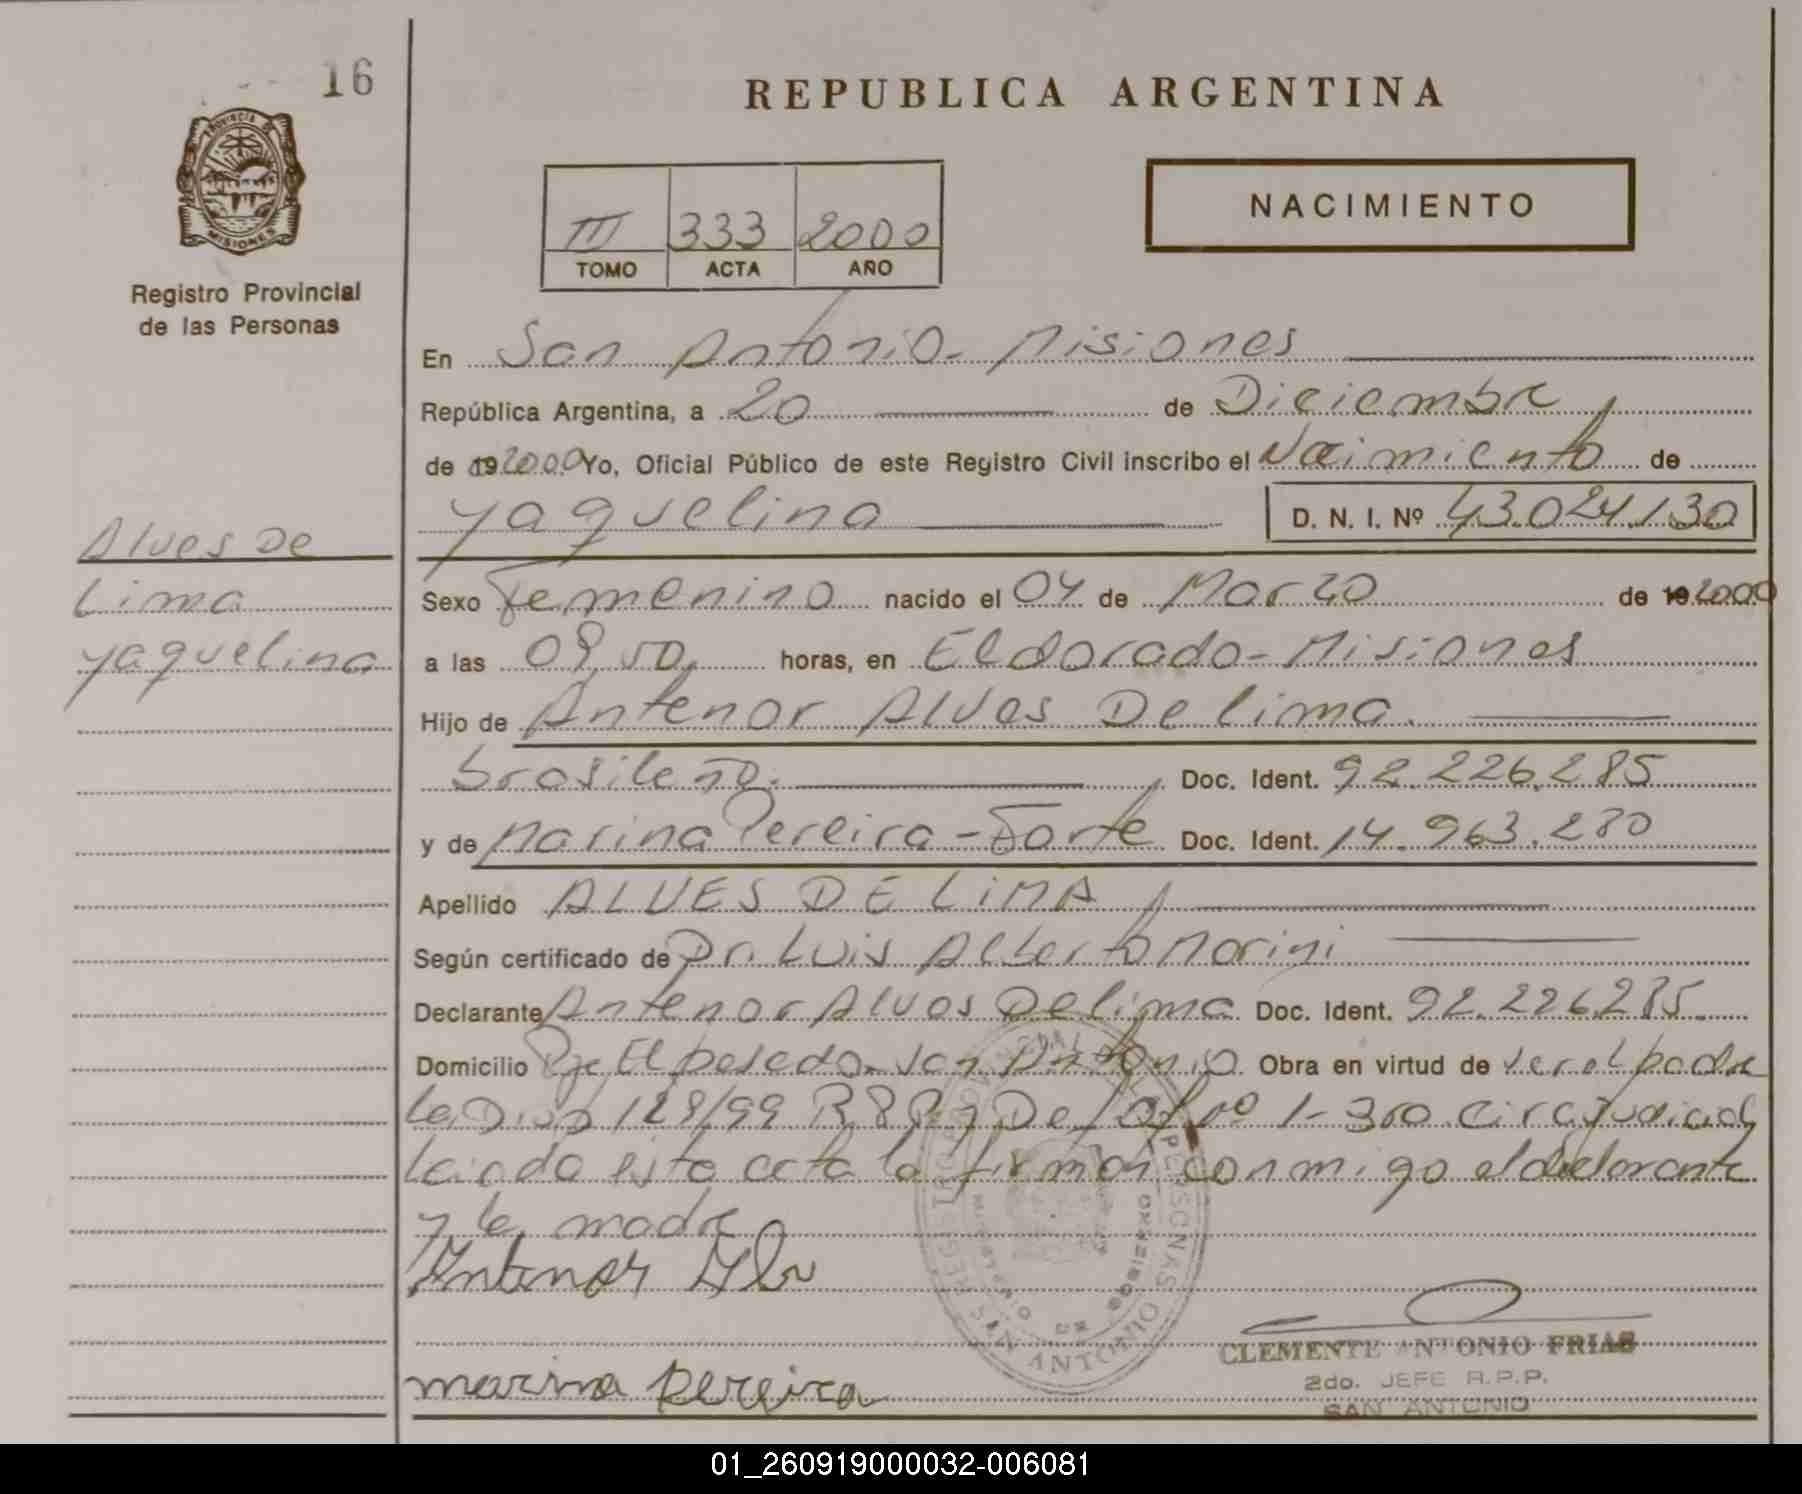 16
REPUBLICA ARGENTINA
PROVINCIA DE
MISIONES
Registro Provincial
de las Personas
III 333 2000
TOMO ACTA AÑO
NACIMIENTO
En San Antonio - Misiones
República Argentina, a 20 de Diciembre
de 19 2000 Yo, Oficial Público de este Registro Civil inscribo el Nacimiento de
Yaquelina D. N. I. Nº 43.024.130
Alves De
Lima
Yaquelina
Sexo Femenino nacido el 04 de Marzo de 19 2000
a las 08,50 horas, en Eldorado - Misiones
Hijo de Antenor Alves De Lima.
brasileño. Doc. Ident. 92.226.285
y de Marina Pereira - Forte Doc. Ident. 14.963.280
Apellido ALVES DE LIMA
Según certificado de Dr. Luis Alberto Morini
Declarante Antenor Alves De Lima Doc. Ident. 92.226.285
Domicilio San Antonio. Obra en virtud de ser el padre
128/99 1- 3ra. Circ. Judicial
Leida esta acta la firman conmigo el declarante
y la madre
Antenor
marina Pereira
REGISTRO PROVINCIAL DE LAS PERSONAS
MINISTERIO DE GOBIERNO
SAN ANTONIO
CLEMENTE ANTONIO FRIAS
2do. JEFE R.P.P.
SAN ANTONIO
01_260919000032-006081